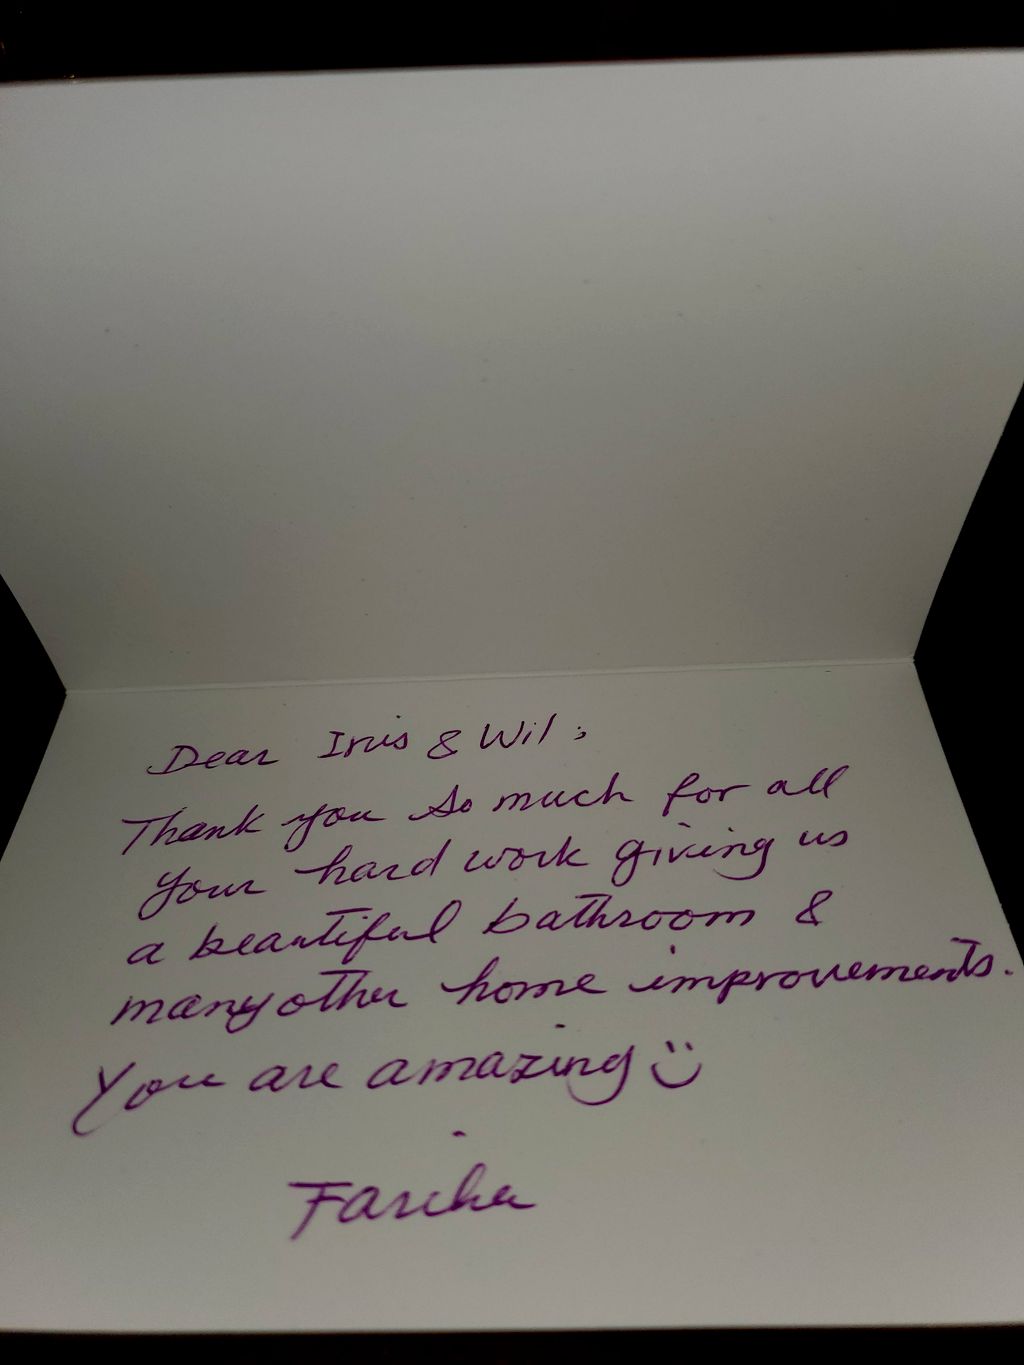 Dear Iris & Wil,
Thank you so much for all
your hard work giving us
a beautiful bathroom &
many other home improvements.
You are amazing :)
Fariha